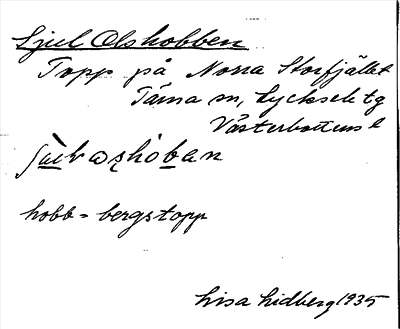 Sjul Olshobben
Topp på Norra Storfjället
Tärna sn, Lycksele tg
Västerbottens l
hobb = bergstopp
Lisa Lidberg 1935